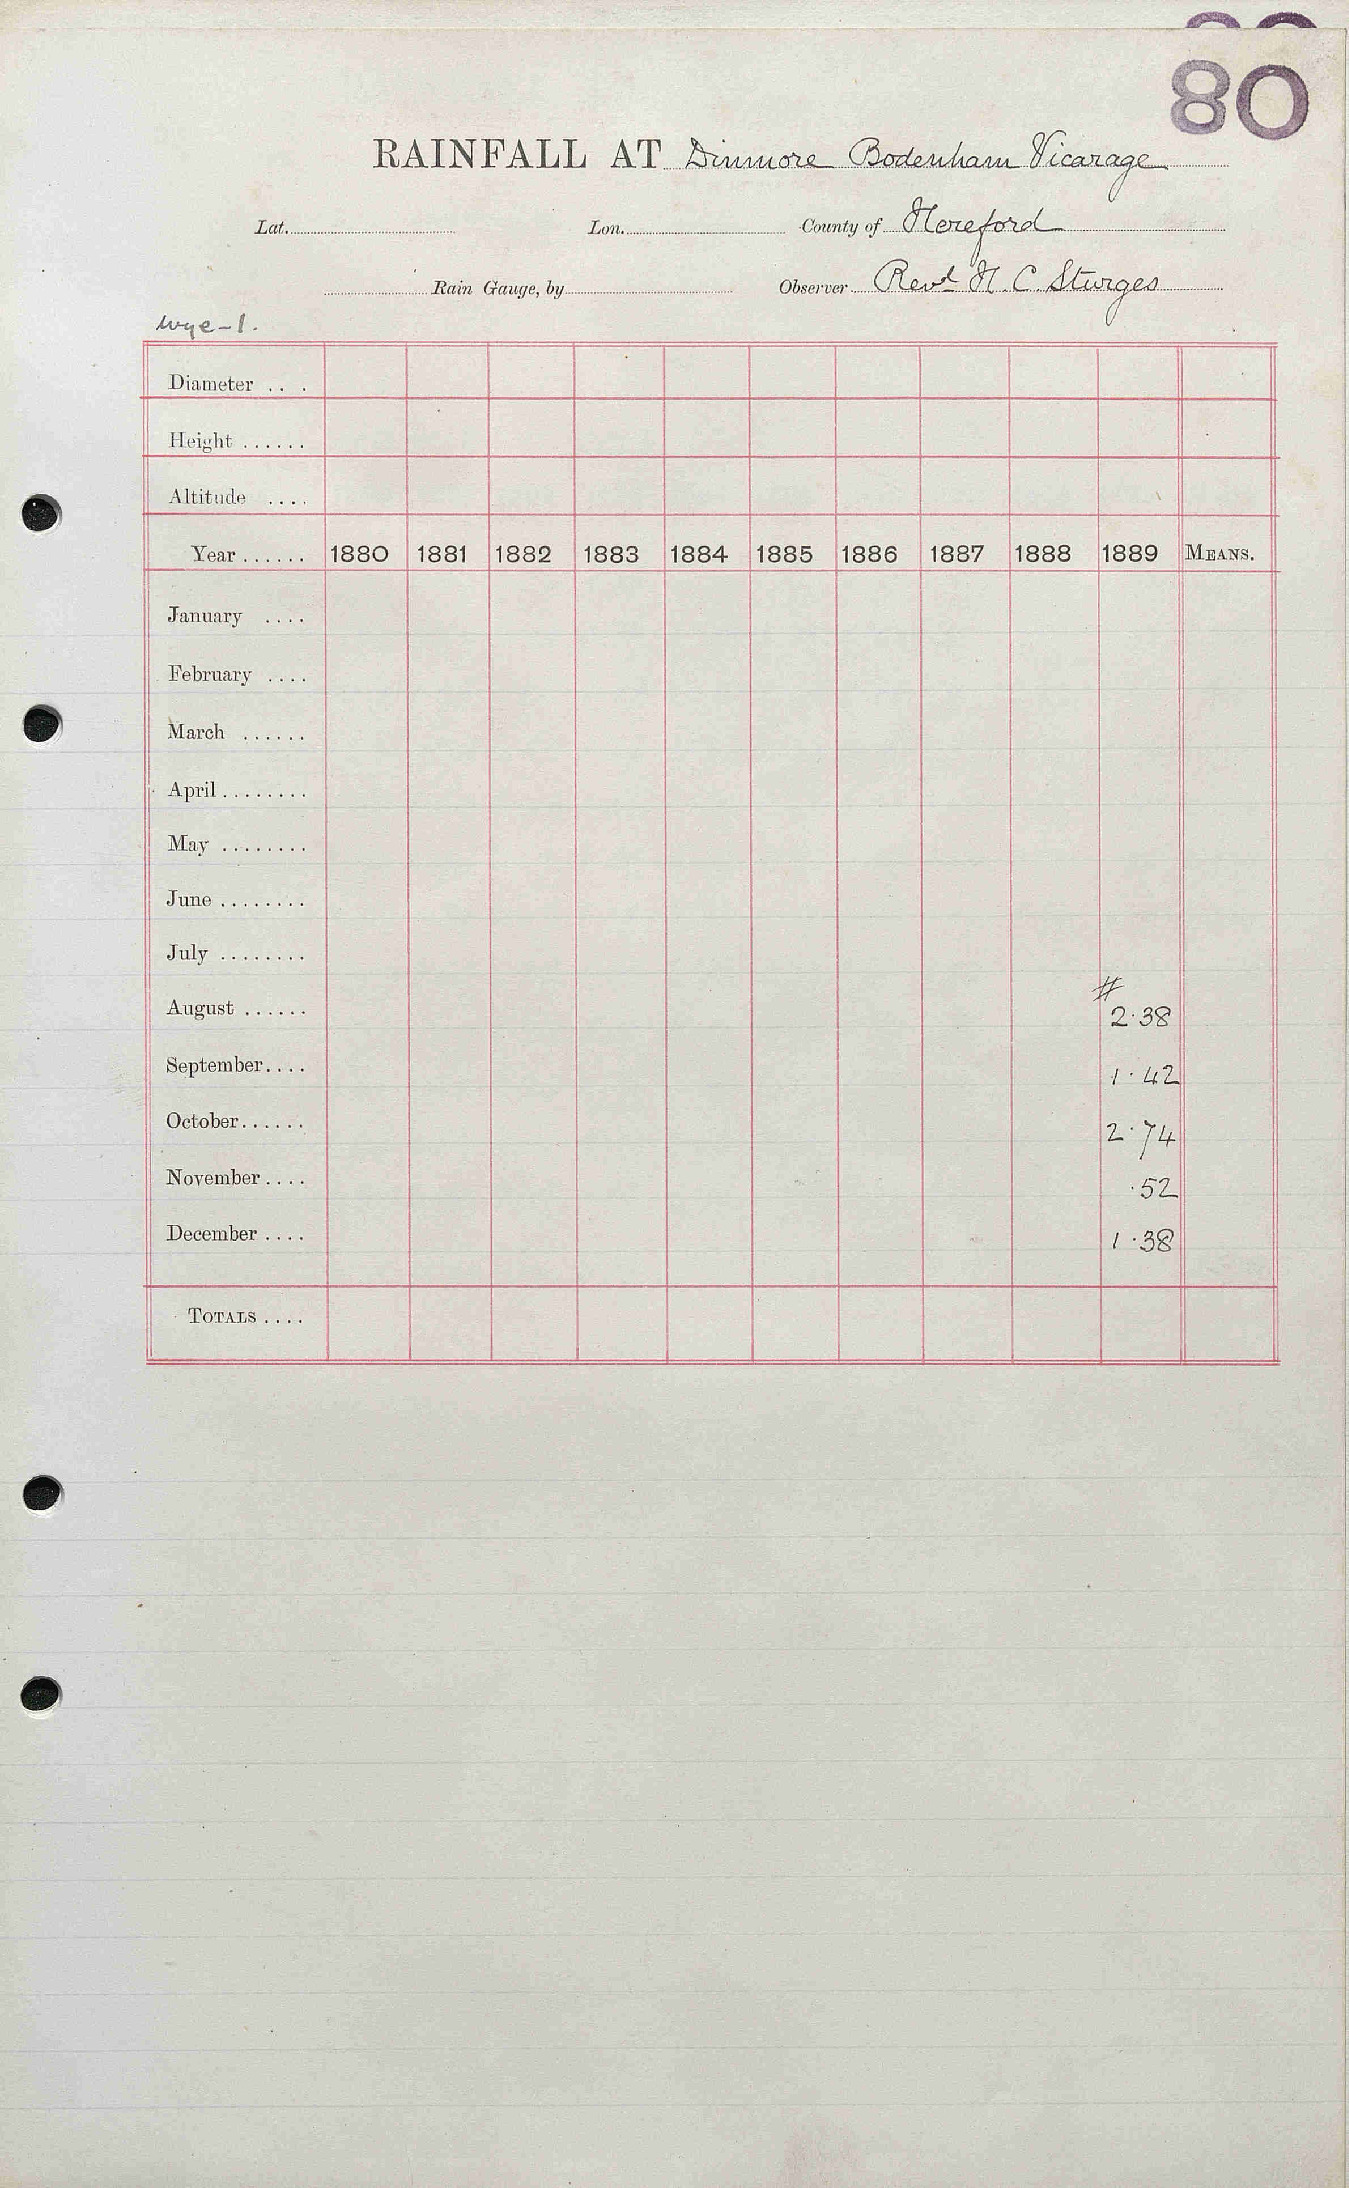 80
RAINFALL AT Dinmore Bodenham Vicarage
Lat. Lon. County of Hereford
Rain Gauge, by Observer Revd H. C. Sturges
Wye-1.
Diameter ...
Height ......
Altitude ....
Year ...... 1880 1881 1882 1883 1884 1885 1886 1887 1888 1889 MEANS.
January ....
February ....
March ......
April ........
May ........
June ........
July ........
#
August ...... 2.38
September.... 1.42
October...... 2.74
November .... .52
December .... 1.38
TOTALS ....